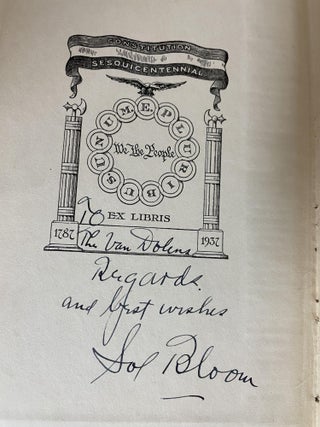 CONSTITUTION
SESQUICENTENNIAL
E PLURIBUS UNUM
We the People
To
EX LIBRIS
1787
1937
The Van Dolens
Regards
and best wishes
Sol Bloom